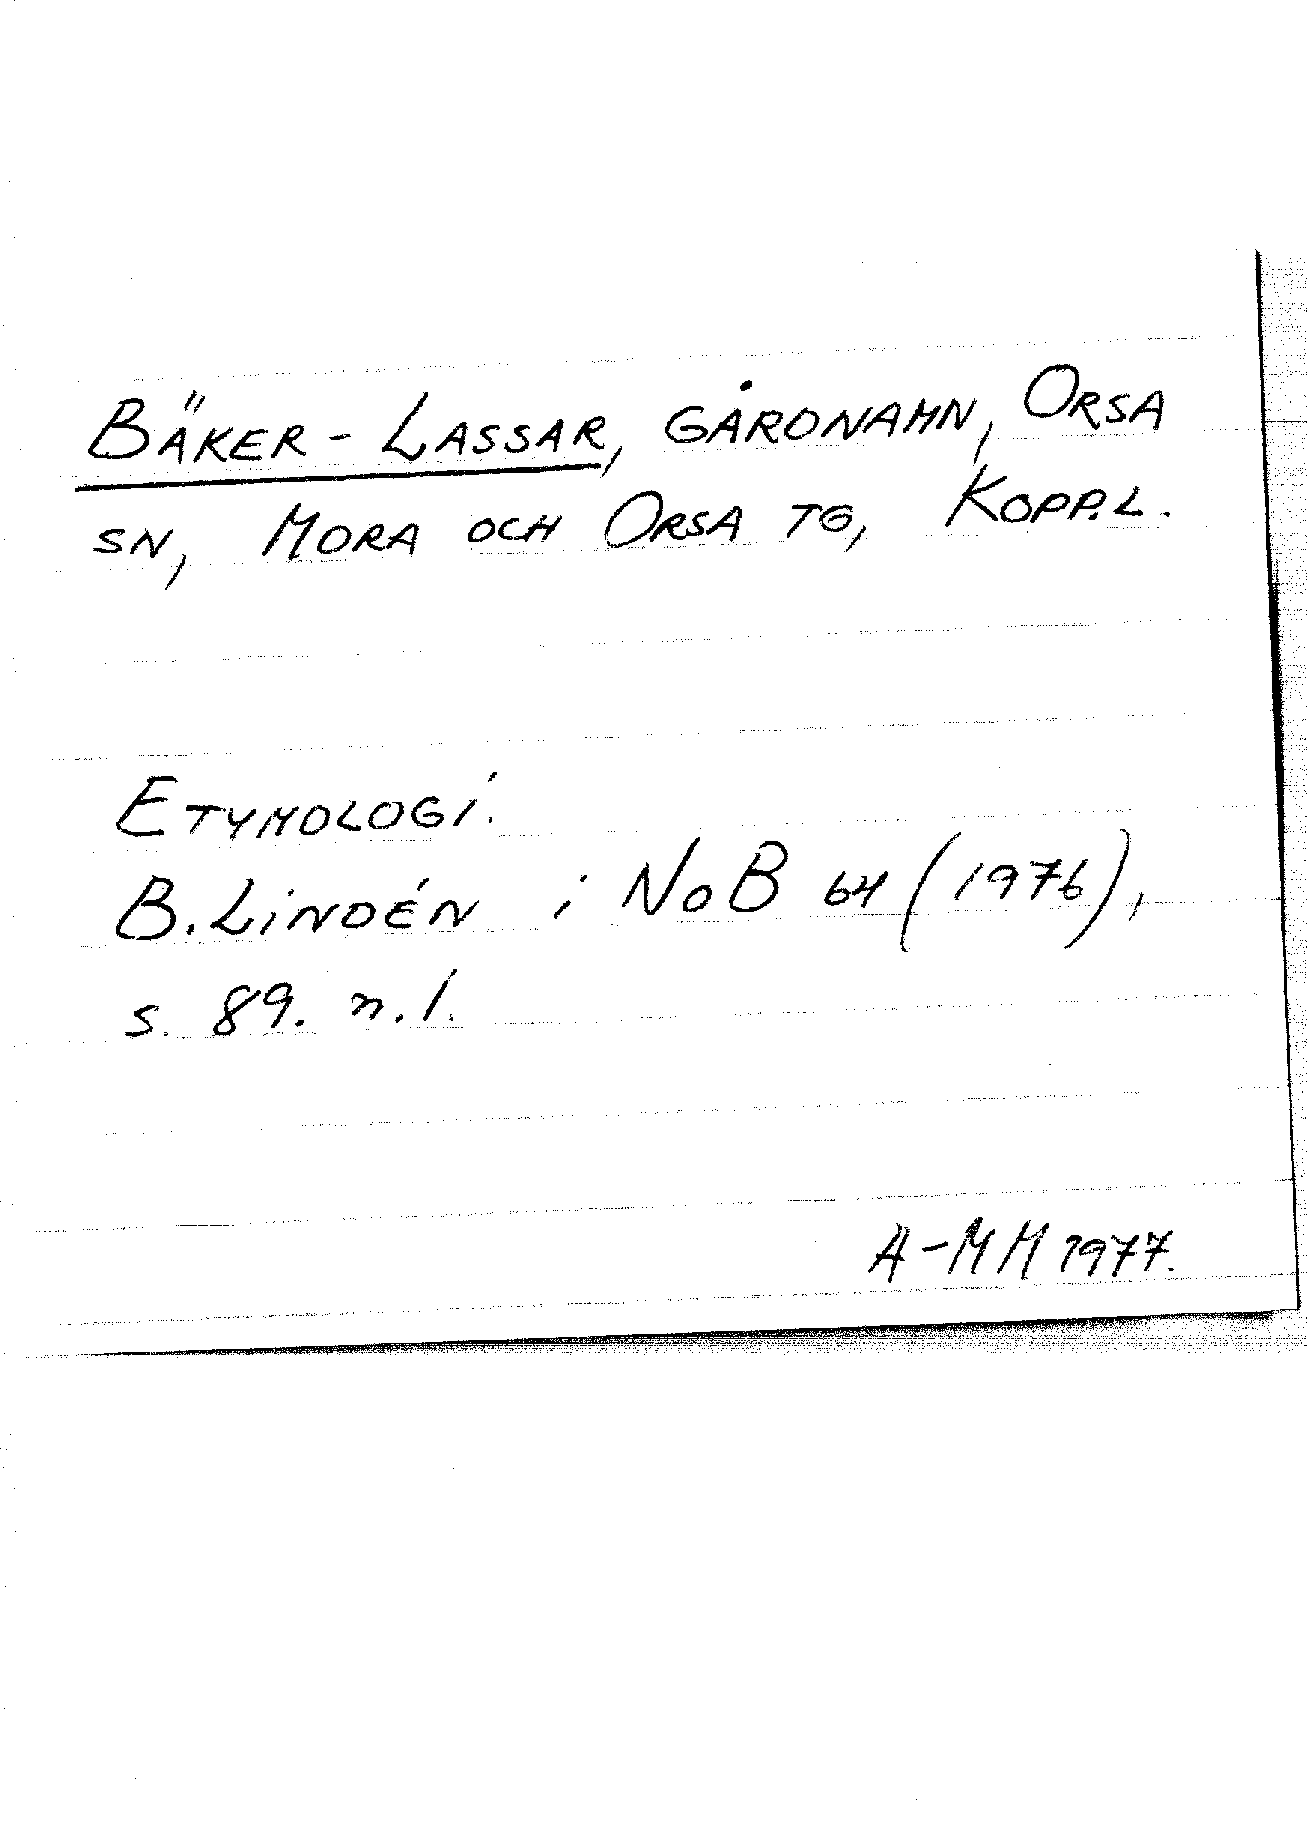 BÄKER-LASSAR, GÅRDNAMN, ORSA
SN, MORA OCH ORSA TG, KOPP.L.
ETYMOLOGI:
B. LINDÉN i NoB 64 (1976),
s. 89. n. 1.
A-MH 1977.